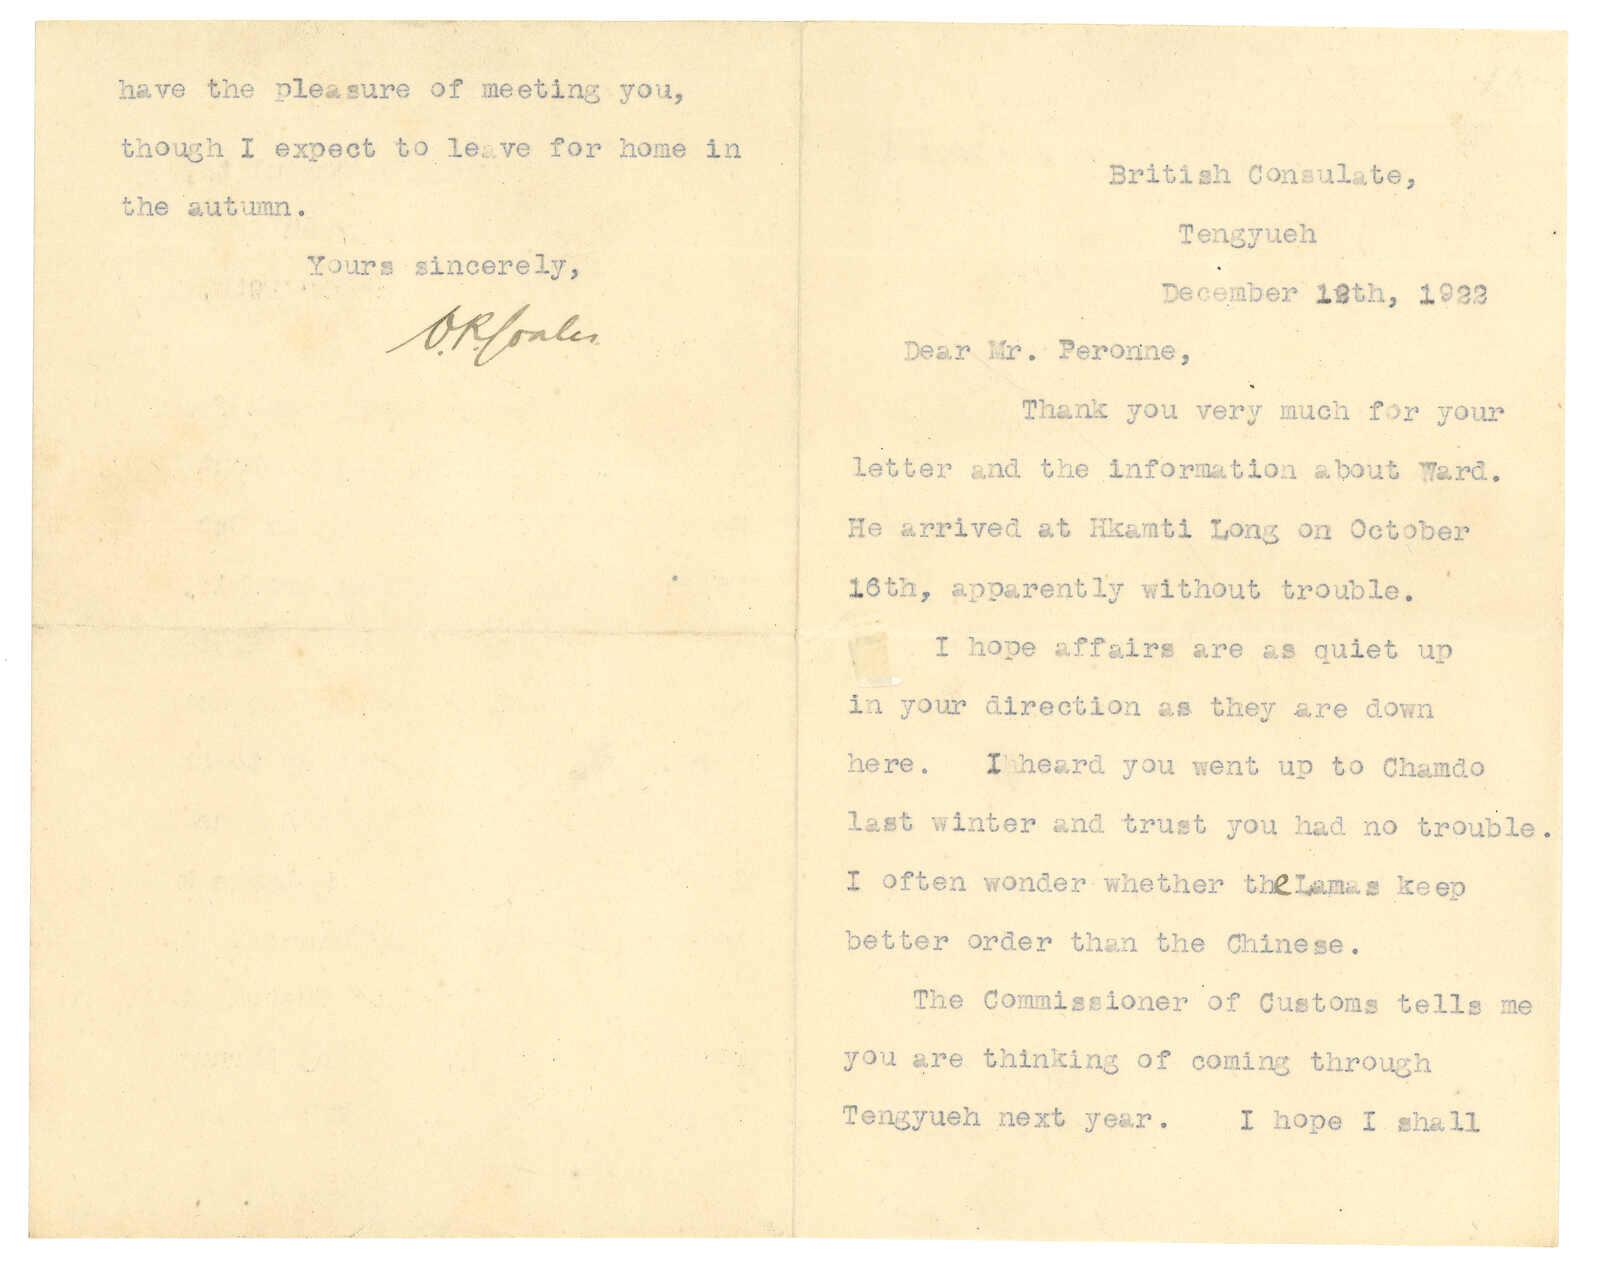 British Consulate,
Tengyueh
December 12th, 1922
Dear Mr. Peronne,
Thank you very much for your
letter and the information about Ward.
He arrived at Hkamti Long on October
16th, apparently without trouble.
I hope affairs are as quiet up
in your direction as they are down
here. I heard you went up to Chamdo
last winter and trust you had no trouble.
I often wonder whether the Lamas keep
better order than the Chinese.
The Commissioner of Customs tells me
you are thinking of coming through
Tengyueh next year. I hope I shall
have the pleasure of meeting you,
though I expect to leave for home in
the autumn.
Yours sincerely,
O.R.Coales